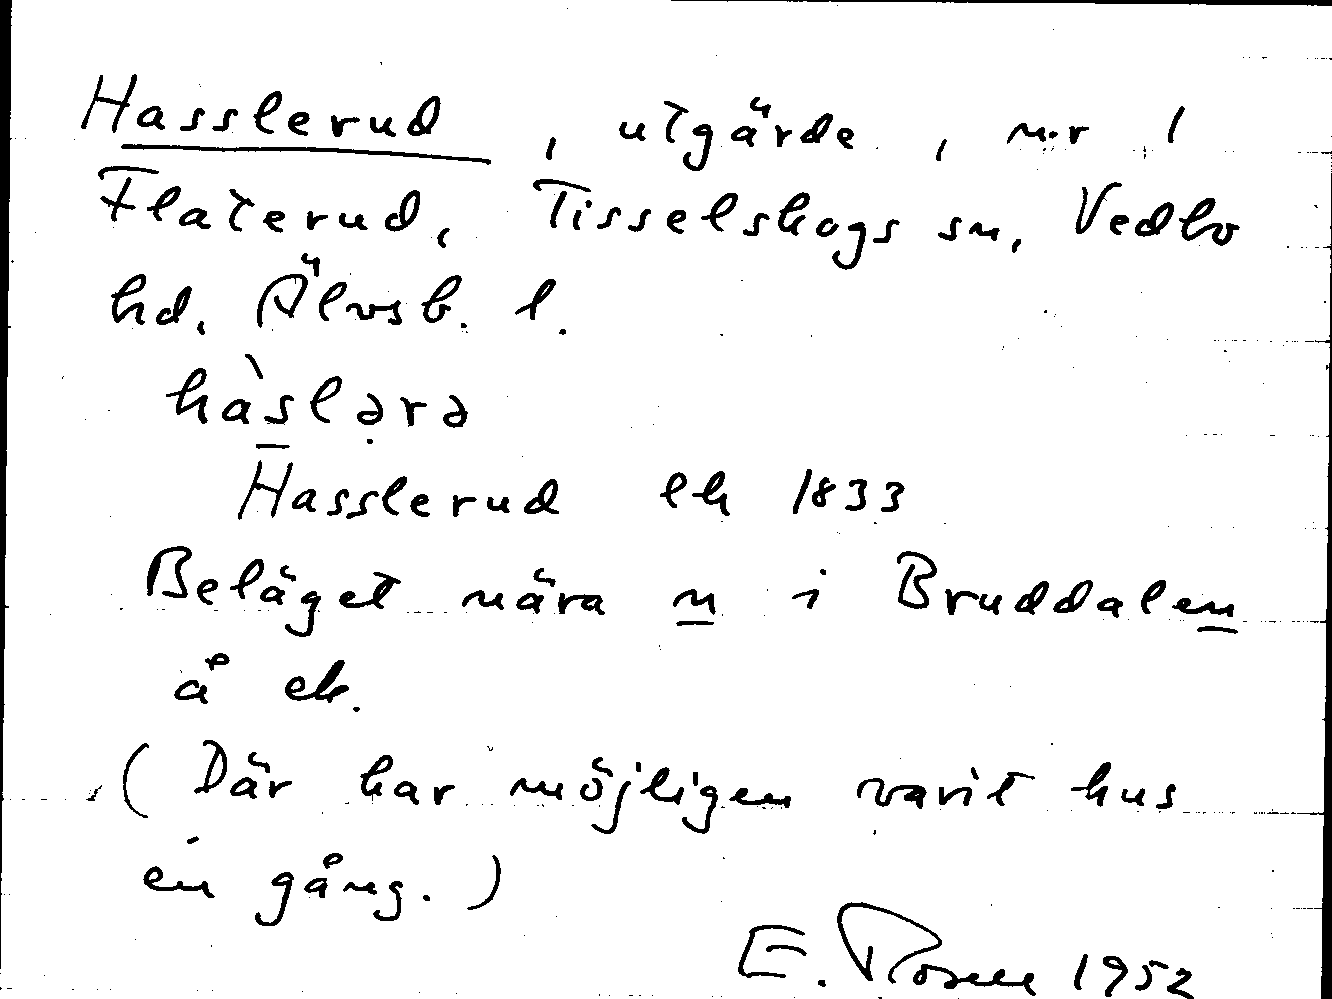 Hasslerud, utgärde, nr 1
Flaterud, Tisselskogs sn, Vedbo
hd. Älvsb. l.
hàslərə
Hasslerud lk 1833
Beläget nära n i Bruddalen
å ek.
(Där har möjligen varit hus
en gång.)
E. Rosell 1952